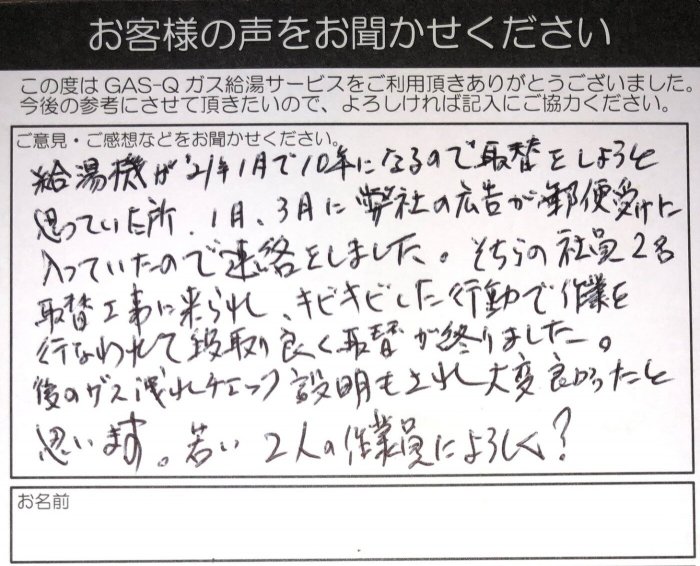 お客様の声をお聞かせください
この度は GAS-Q ガス給湯サービスをご利用頂きありがとうございました。
今後の参考にさせて頂きたいので、よろしければ記入にご協力ください。
ご意見・ご感想などをお聞かせください。
給湯機が'21年1月で10年になるので取替をしようと
思っていた所、1月、3月に弊社の広告が郵便受けに
入っていたので連絡をしました。そちらの社員2名
取替工事に来られ、キビキビした行動で作業を
行なわれて段取り良く取替が終りました。
後のガス洩れチェック説明もされ大変良かったと
思います。若い2人の作業員によろしく?
お名前